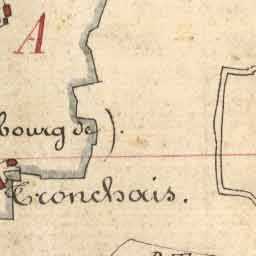 A
bourg de ).
Tronchais.